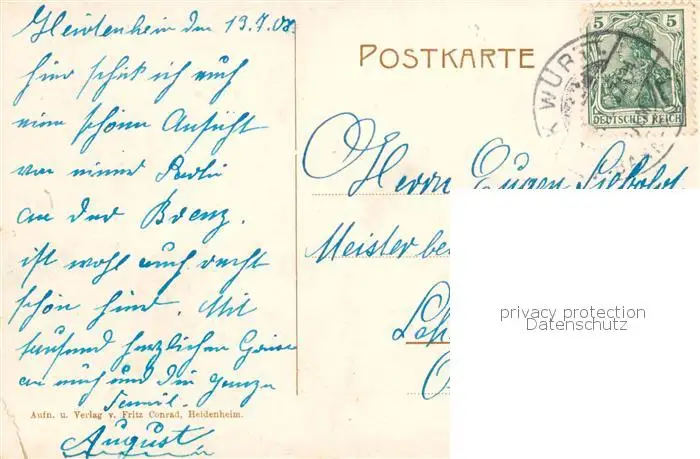 Heidenheim den 13.7.08.
hier schik ich euch
eine schöne Ansicht
von einer Partie
an der Brenz.
ist wohl auch recht
schön hier. Mit
tausend herzlichen Grüsse
an euch und die ganze
Famil.
August
Aufn. u. Verlag v. Fritz Conrad, Heidenheim.
POSTKARTE
5 5
DEUTSCHES REICH
K. WÜRTT.
Herrn Eugen Siebold
Meister bei
privacy protection
Datenschutz